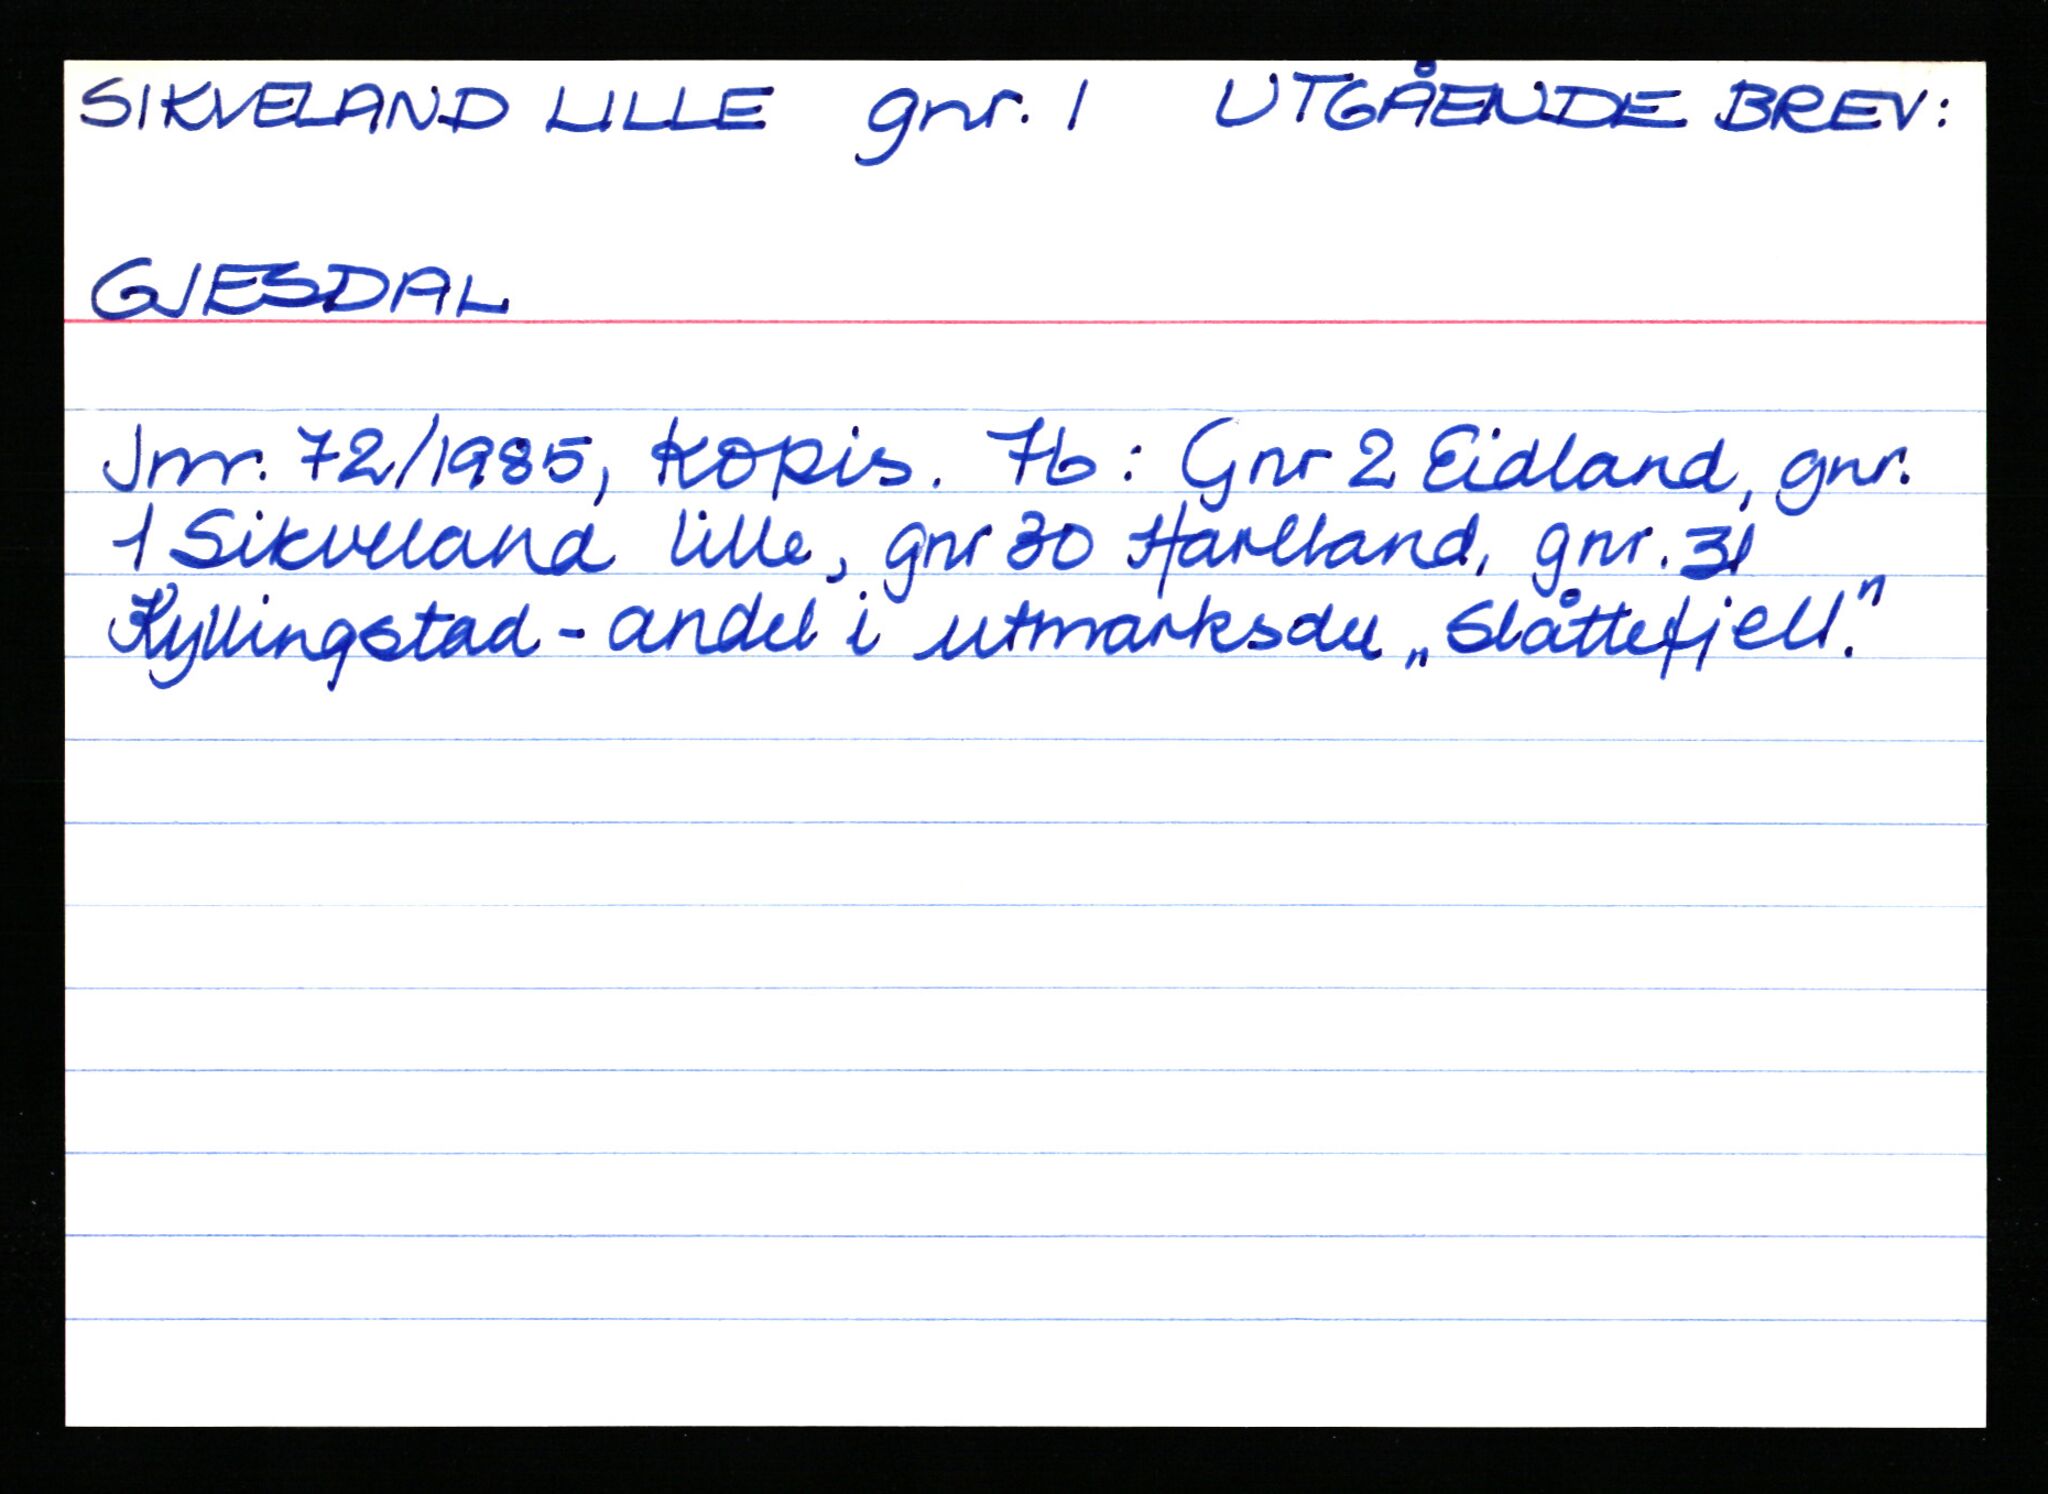 SIKVELAND LILLE gnr. 1 UTGÅENDE BREV:
GJESDAL
Jnr. 72/1985, Kopis. 76: Gnr 2 Eidland, gnr.
1 Sikveland lille, gnr 30 Havelland, gnr. 31
Kyllingstad - andel i utmarksdel „Slåttefjell."